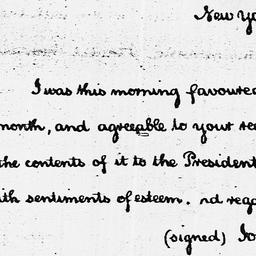 New Yo
I was this morning favoured
month, and agreeable to your re
the contents of it to the President
ith sentiments of esteem. nd rega
(signed) Jo